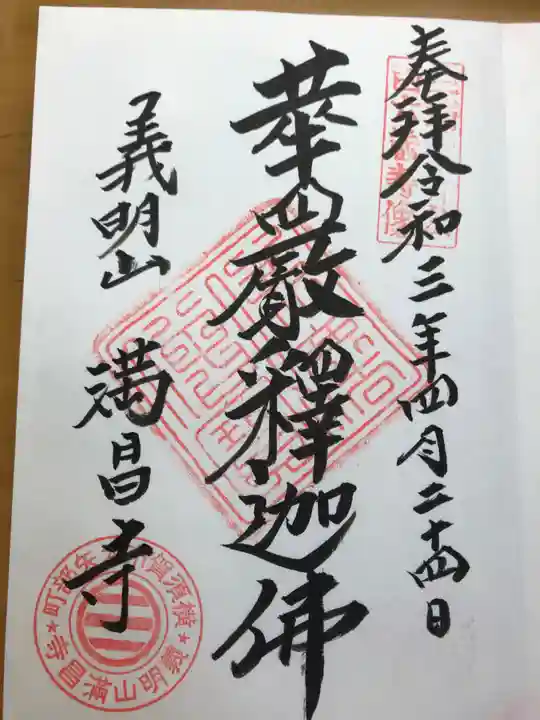 奉拝令和三年四月二十四日
華嚴釋迦佛
義明山 満昌寺
義明山満昌寺